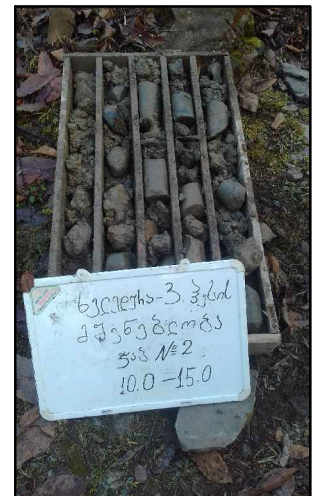 ხელედურა-3 ჰესის
მშენებლობა
ჭაბ №2
10.0-15.0